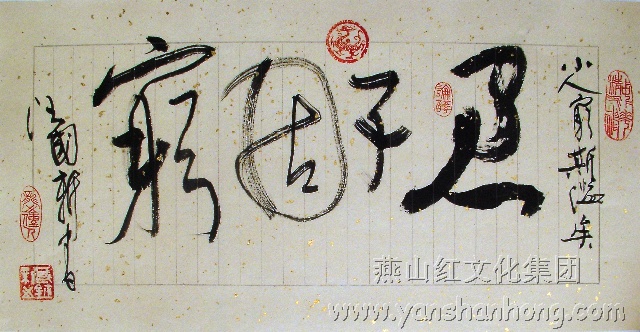 君子固窮
小人窮斯濫矣
汪國新書
燕山红文化集团
www.yanshanhong.com